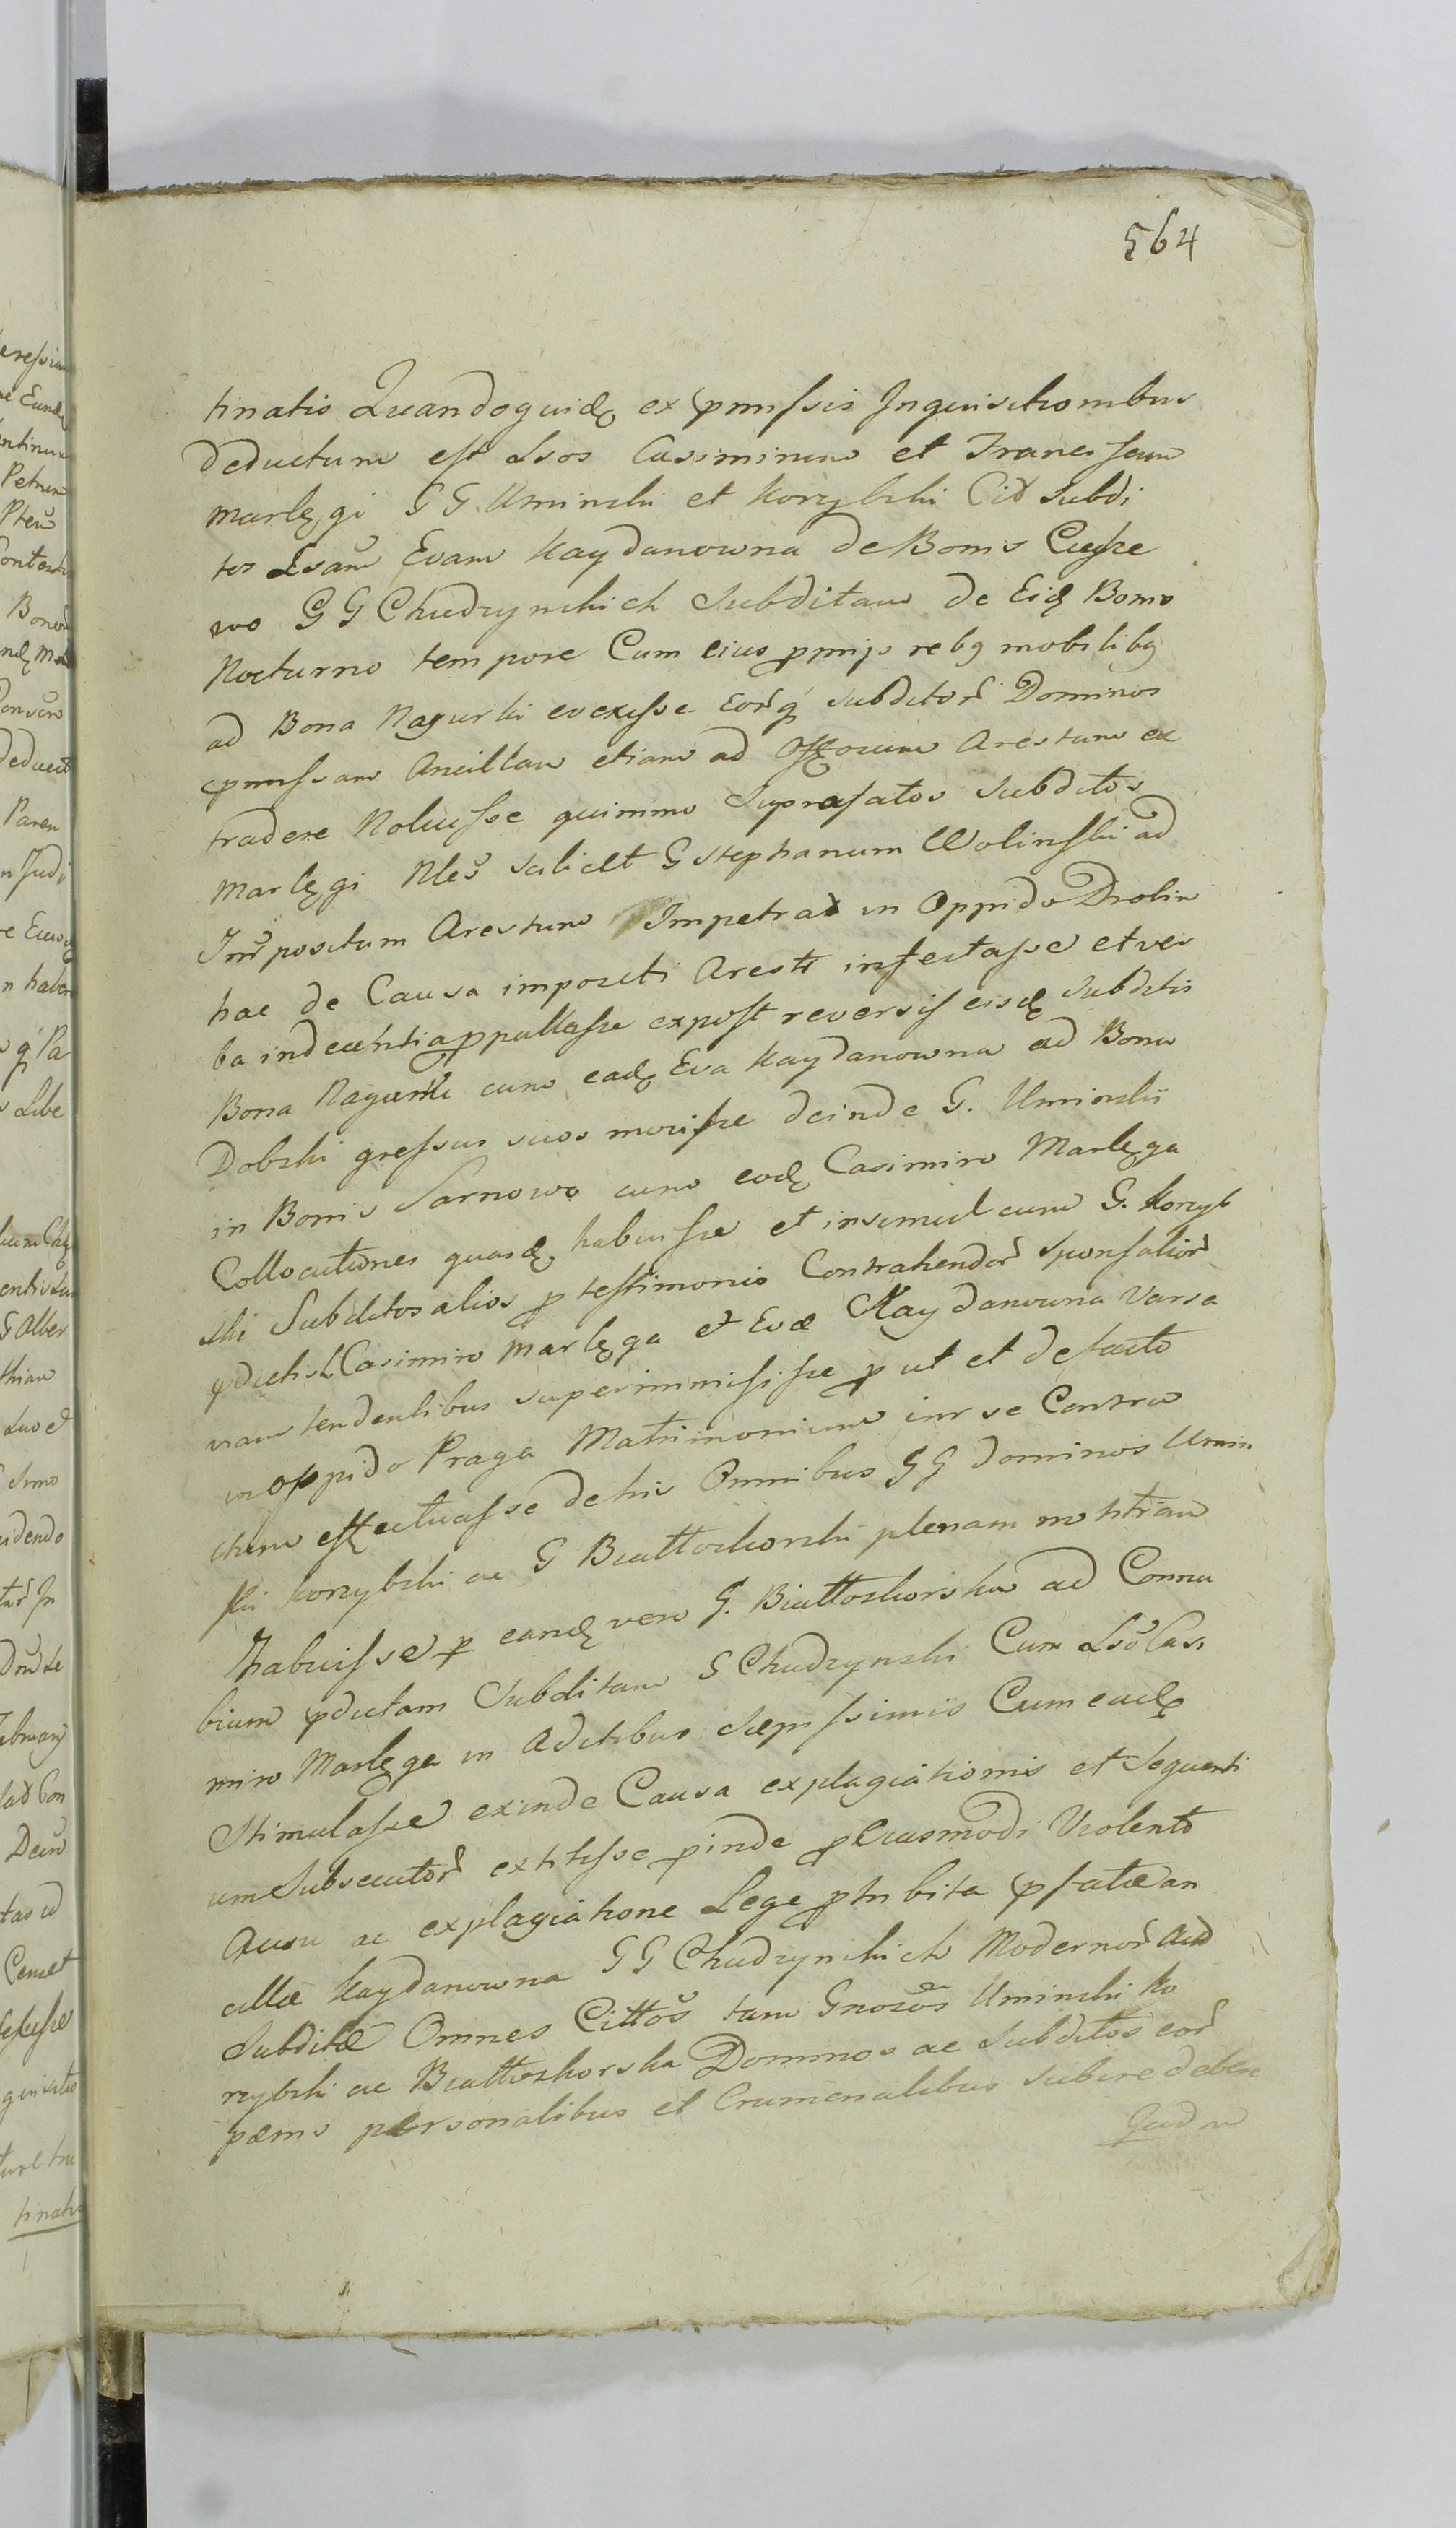 564
tinatis Quandoquid ex pmissis Inquisitionibus
deductum est Lsos Casimirum et Franciscum
Marlęgi GG Uminski et Korzybski Cit Subdi
tos Lsam Evam Kaydanowna de Bonis Ciesze
wo GG Chudzynskich Subditam de Eisd Bonis
Nocturno tempore Cum eius ppriis rebq mobilibq
ad Bona Nagurki evexisse Eorq subditor Dominos
pmissam Ancillam etiam ad Officiosum Arestum ex
tradere Noluisse quinimo Suprafatos Subditos
Marlęgi Nles scilicet G Stephanum Wolinski ad
Inrpositum Arestum Impetrat in Oppido Drobin
hac de Causa impositi Aresti infestasse et ver
ba indecentia ppullasse expost reversis eisd subditis
Bona Nagurki cum ead Eva Kaydanowna ad Bona
Dobski gressus suos movisse deinde G. Uminski
in Bonis Sarnowo cum eod Casimiro Marlęga
Collocutiones quasd habuisse et insimul cum G. Korzyb
ski Subditos alios p testimonio Contrahendor Sponsalior
pdictis Casimiro Marlęga et Evæ Kaydanowna Varsa
viam tendentibus superimmisisse p ut et de facto
in oppido Praga Matrimonium inr se Contra
ctum effectuasse de his Omnibus GG Dominos Umin
ski Korzybski ac G Biattoskorski plenam notitiam
habuisse p eand vero G. Biattoskorska ad Connu
bium pdictam Subditam G Chudzynski Cum Lso Casi
miro Marlęga in Aditibus sæpissimis Cum ead
Stimulasse exinde Causa explagiationis et Sequenti
um Subsecutor extitisse pinde p Eiusmodi Violento
Ausu ac explagiatione Lege phibita pfatæ an
cillæ Kaydanowna GG Chudzynskich Modernor Act
Subditæ Omnes Cittos tam Gnosos Uminski Ko
rzybski ac Biattoskorska Dominos ac Subditos eor
pœnis personalibus et Crumenalibus subire debere